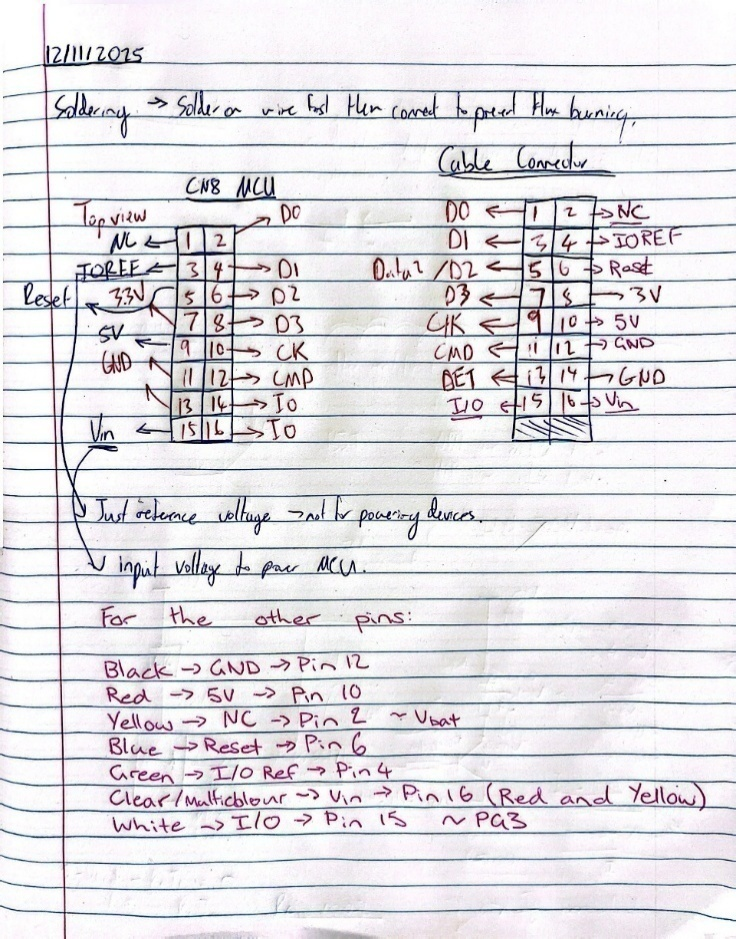 12/11/2025
Soldering → Solder on wire first then connect to prevent flux burning.
Cable Connector
CN8 MCU
Top view
NC ← 1 2 → D0
IOREF ← 3 4 → D1
Reset 3.3V 5 6 → D2
7 8 → D3
5V ← 9 10 → CK
GND 11 12 → CMD
13 14 → IO
Vin ← 15 16 → IO
D0 ← 1 2 → NC
D1 ← 3 4 → IOREF
Data2 / D2 ← 5 6 → Reset
D3 ← 7 8 → 3V
CLK ← 9 10 → 5V
CMD ← 11 12 → GND
DET ← 13 14 → GND
I/O ← 15 16 → Vin
Just reference voltage → not for powering devices.
input voltage to power MCU.
For the other pins:
Black → GND → Pin 12
Red → 5V → Pin 10
Yellow → NC → Pin 2 ~ Vbat
Blue → Reset → Pin 6
Green → I/O Ref → Pin 4
Clear/Multicolour → Vin → Pin 16 (Red and Yellow)
White → I/O → Pin 15 ~ PG3